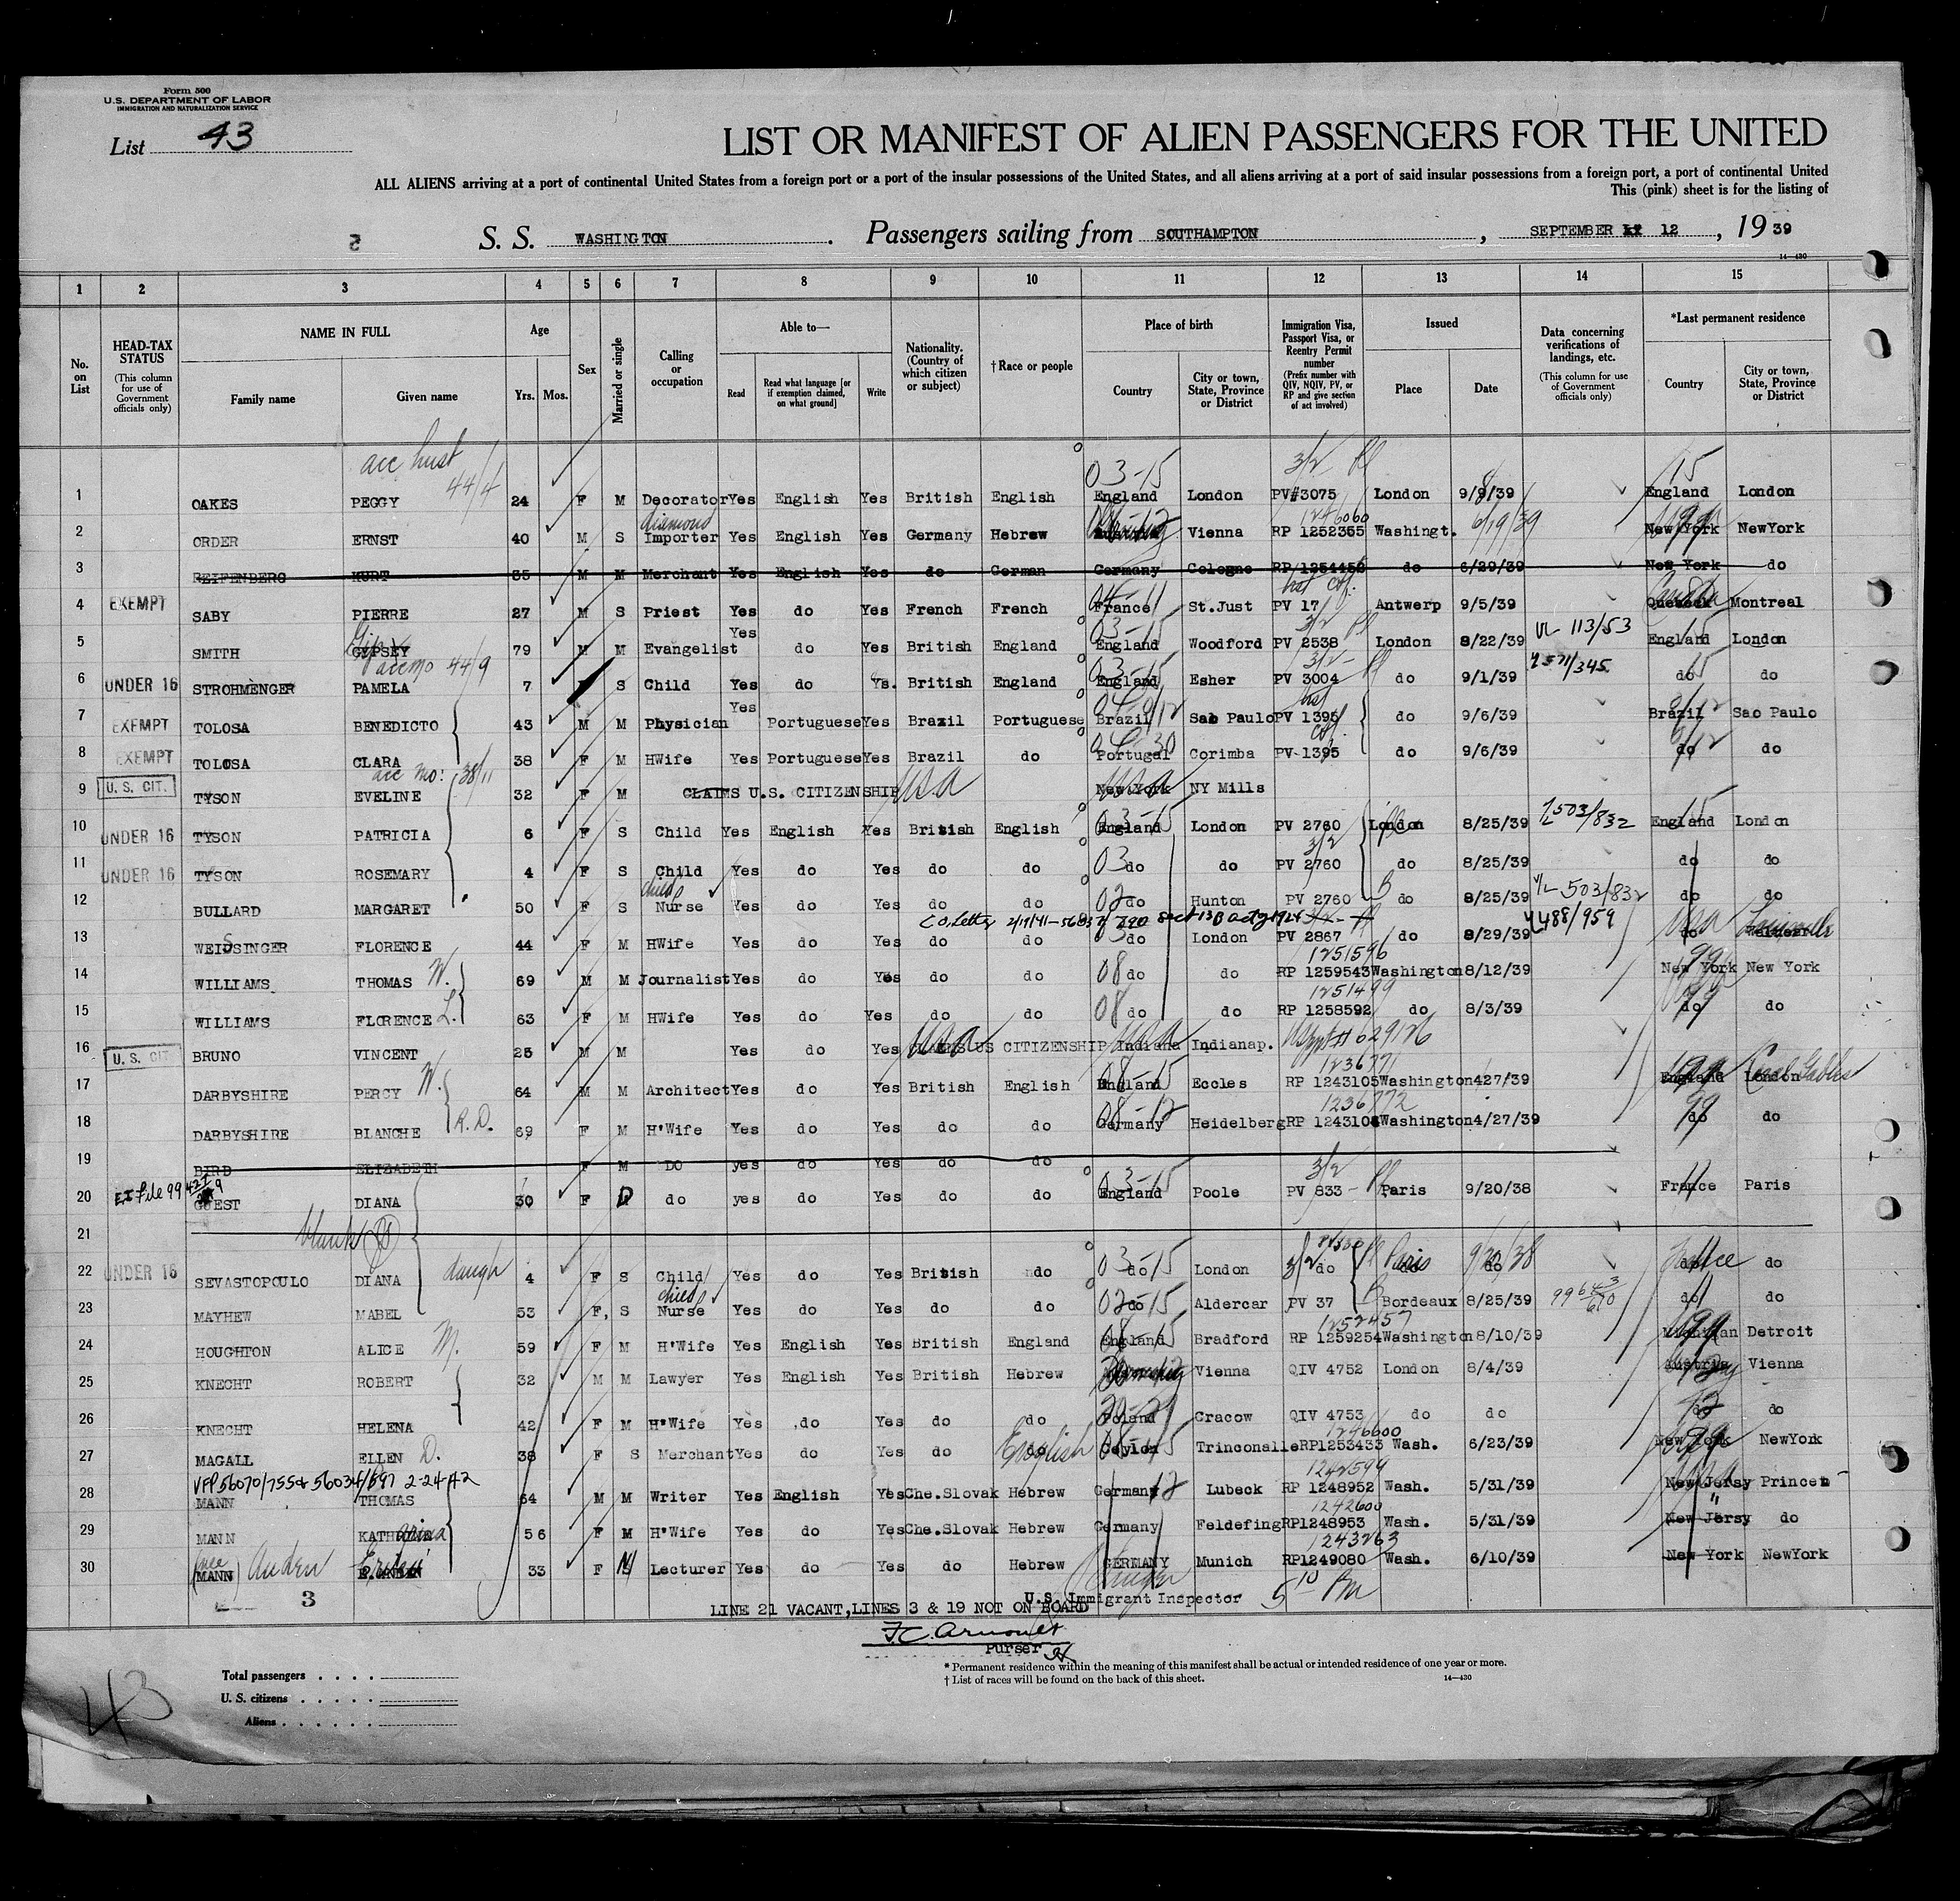 Form 500
U.S. DEPARTMENT OF LABOR
IMMIGRATION AND NATURALIZATION SERVICE
List 43
LIST OR MANIFEST OF ALIEN PASSENGERS FOR THE UNITED
ALL ALIENS arriving at a port of continental United States from a foreign port or a port of the insular possessions of the United States, and all aliens arriving at a port of said insular possessions from a foreign port, a port of continental United
This (pink) sheet is for the listing of
S. S. WASHINGTON. Passengers sailing from SOUTHAMPTON, SEPTEMBER 12, 1939
14-430
1 2 3 4 5 6 7 8 9 10 11 12 13 14 15
No. on List
HEAD-TAX STATUS (This column for use of Government officials only)
NAME IN FULL Family name Given name
Age Yrs. Mos.
Sex
Married or single
Calling or occupation
Able to— Read Read what language [or if exemption claimed, on what ground] Write
Nationality. (Country of which citizen or subject)
†Race or people
Place of birth Country City or town, State, Province or District
Immigration Visa, Passport Visa, or Reentry Permit number (Prefix number with QIV, NQIV, PV, or RP and give section of act involved)
Issued Place Date
Data concerning verifications of landings, etc. (This column for use of Government officials only)
*Last permanent residence Country City or town, State, Province or District
acc husb 44/4 03-15 3/2 15
1 OAKES PEGGY 24 F M Decorator Yes English Yes British English England London PV#3075 London 9/8/39 England London
diamond 1246060 6/19/39
2 ORDER ERNST 40 M S Importer Yes English Yes Germany Hebrew Vienna RP 1252355 Washingt. New York NewYork
3 REIFENBERG KURT 35 M M Merchant Yes English Yes do German Germany Cologne RP/1254452 do 6/29/39 New York do
4 EXEMPT SABY PIERRE 27 M S Priest Yes do Yes French French France St.Just PV 17 Antwerp 9/5/39 Montreal
03-15 3/2 VL 113/53
5 SMITH GYPSEY 79 M M Evangelist Yes do Yes British England England Woodford PV 2538 London 8/22/39 England London
acc mo 44/9 03-15 3/2 571/345
6 UNDER 16 STROHMENGER PAMELA 7 S Child Yes do Ys. British England England Esher PV 3004 do 9/1/39 do do
7 EXEMPT TOLOSA BENEDICTO 43 M M Physician Yes Portuguese Yes Brazil Portuguese Brazil Sao Paulo PV 1395 do 9/6/39 Brazil Sao Paulo
8 EXEMPT TOLOSA CLARA 38 F M HWife Yes Portuguese Yes Brazil do Portugal Corimba PV 1395 do 9/6/39 do do
acc mo: 38/11
9 U. S. CIT. TYSON EVELINE 32 F M CLAIMS U.S. CITIZENSHIP USA USA New York NY Mills
03-15 503/832 15
10 UNDER 16 TYSON PATRICIA 6 F S Child Yes English Yes British English England London PV 2760 London 8/25/39 England London
3/2
11 UNDER 16 TYSON ROSEMARY 4 F S Child Yes do Yes do do 03 do do PV 2760 do 8/25/39 do do
childs V/L 503/832
12 BULLARD MARGARET 50 F S Nurse Yes do Yes do do 02 do Hunton PV 2760 do 8/25/39 do do
C O. Letter 2/19/41-56037/290 Sect 13 B act 1924 488/959
13 WEISSINGER FLORENCE 44 F M HWife Yes do Yes do do 03 do London PV 2867 do 8/29/39 USA
1251596 99
14 WILLIAMS THOMAS W. 69 M M Journalist Yes do Yes do do 08 do do RP 1259543 Washington 8/12/39 New York New York
1251499 99
15 WILLIAMS FLORENCE L. 63 F M HWife Yes do Yes do do 08 do do RP 1258592 do 8/3/39 do do
16 U. S. CIT BRUNO VINCENT 25 M M Yes do Yes USA CLAIMS US CITIZENSHIP USA Indiana Indianap. USppt # 029126
1236771
17 DARBYSHIRE PERCY W. 64 M M Architect Yes do Yes British English England Eccles RP 1243105 Washington 427/39 England London Coral Gables
R.D. 08-12 1236772 99
18 DARBYSHIRE BLANCHE 69 F M H'Wife Yes do Yes do do Germany Heidelberg RP 1243106 Washington 4/27/39 do do
19 BIRD ELIZABETH F M DO yes do Yes do do
03-15 3/2
20 GUEST DIANA 30 F D do yes do Yes do do England Poole PV 833 Paris 9/20/38 France Paris
21 blank
22 UNDER 16 SEVASTOPOULO DIANA daugh 4 F S Child Yes do Yes British do 03-15 do London 3/2 do Paris 9/20/38 do
childs
23 MAYHEW MABEL 53 F, S Nurse Yes do Yes do do 02-15 do Aldercar PV 37 Bordeaux 8/25/39 do do
1252457
24 HOUGHTON ALICE M. 59 F M H'Wife Yes English Yes British England England Bradford RP 1259254 Washington 8/10/39 Michigan Detroit
25 KNECHT ROBERT 32 M M Lawyer Yes English Yes British Hebrew Vienna QIV 4752 London 8/4/39 Austria Vienna
26 KNECHT HELENA 42 F M H'Wife Yes do Yes do do Poland Cracow QIV 4753 do do do do
1246600
27 MAGALL ELLEN D. 38 F S Merchant Yes do Yes do English Ceylon Trinconalle RP1253433 Wash. 6/23/39 New York NewYork
VFP 56070/755 & 56034/597 2-24-42 1242599
28 MANN THOMAS 64 M M Writer Yes English Yes Che.Slovak Hebrew Germany Lubeck RP 1248952 Wash. 5/31/39 New Jersy Princeton
1242600
29 MANN KATHARINA 56 F M H'Wife Yes do Yes Che.Slovak Hebrew Germany Feldefing RP1248953 Wash. 5/31/39 New Jersy do
1243263
30 (nee MANN) Auden Erika 33 F M Lecturer Yes do Yes do Hebrew GERMANY Munich RP1249080 Wash. 6/10/39 New York NewYork
3 U.S. Immigrant Inspector 5 10 PM
LINE 21 VACANT, LINES 3 & 19 NOT ON BOARD
Purser
Total passengers
U. S. citizens
Aliens
* Permanent residence within the meaning of this manifest shall be actual or intended residence of one year or more.
† List of races will be found on the back of this sheet.
14-430
43